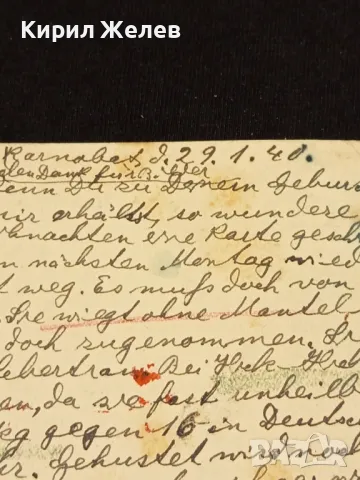 Кирил Желев
Karnobat, d. 29.1.40.
Vielen Dank für Bilder
Wenn Du zu Deinem Gebur
mir erhältst, so wundere
Weihnachten eine Karte gesch
n nächsten Montag wied
t weg. Es muß doch von
. Sie wiegt ohne Mantel
doch zugenommen. Sie
Lebertran. Bei
en, da sie fast unheilb
eg gegen 16 in Deutsch
r. Gehustet wird noch
bazar